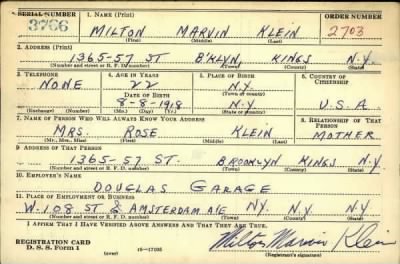 SERIAL NUMBER 1. NAME (Print) ORDER NUMBER
3766 MILTON MARVIN KLEIN 2703
(First) (Middle) (Last)
2. ADDRESS (Print)
1365-57 ST B'KLYN KINGS N.Y.
(Number and street or R. F. D. number) (Town) (County) (State)
3. TELEPHONE 4. AGE IN YEARS 5. PLACE OF BIRTH 6. COUNTRY OF CITIZENSHIP
NONE 22 N.Y.
DATE OF BIRTH (Town or county)
8-8-1918 N.Y. U.S.A
(Exchange) (Number) (Mo.) (Day) (Yr.) (State or country)
7. NAME OF PERSON WHO WILL ALWAYS KNOW YOUR ADDRESS 8. RELATIONSHIP OF THAT PERSON
MRS. ROSE KLEIN MOTHER
(Mr., Mrs., Miss) (First) (Middle) (Last)
9. ADDRESS OF THAT PERSON
1365-57 ST. BROOKLYN KINGS N.Y
(Number and street or R. F. D. number) (Town) (County) (State)
10. EMPLOYER'S NAME
DOUGLAS GARAGE
11. PLACE OF EMPLOYMENT OR BUSINESS
W. 108 ST & AMSTERDAM AVE NY. N.Y N.Y
(Number and street or R. F. D. number) (Town) (County) (State)
I AFFIRM THAT I HAVE VERIFIED ABOVE ANSWERS AND THAT THEY ARE TRUE.
REGISTRATION CARD
D. S. S. Form 1 (over) 16-17105 Milton Marvin Klein
(Registrant's signature)